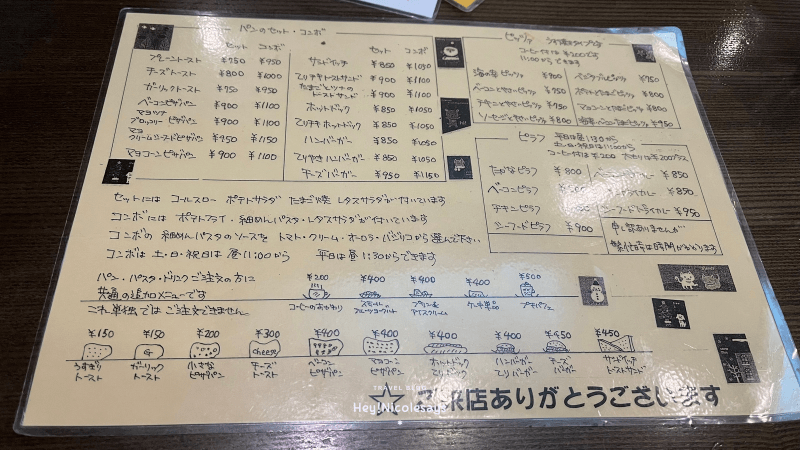 パンのセット・コンボ
セット コンボ
プレーントースト ¥750 ¥950
チーズトースト ¥800 ¥1000
ガーリックトースト ¥750 ¥950
ベーコンピザパン ¥900 ¥1100
マヨツナ
ブロッコリーピザパン ¥900 ¥1100
マヨ
クリームシーフードピザパン ¥950 ¥1150
マヨコーンピザパン ¥900 ¥1100
セット コンボ
サンドイッチ ¥850 ¥1050
てりチキトーストサンド ¥900 ¥1100
たまごとツナの
トーストサンド ¥900 ¥1100
ホットドック ¥850 ¥1050
てりチキホットドック ¥850 ¥1050
ハンバーガー ¥850 ¥1050
てりやきハンバーガー ¥850 ¥1050
チーズバーガー ¥950 ¥1150
ピッツァ
コーヒー付は¥200です
11:00からできます
海の幸ピッツァ
ベーコンとやせいピッツァ
チキンとやせいピッツァ ¥750
ソーセージとやせいピッツァ ¥800
ピラフ 平日は昼11:30から
土・日・祝日は11:00から
コーヒー付は¥200 大もりは¥200プラス
たかなピラフ ¥800
ベーコンピラフ
チキンピラフ
シーフードピラフ ¥900
¥850
ドライカレー ¥850
シーフードドライカレー ¥950
申し訳ありませんが
繁忙時は時間がかかります
セットには コールスロー ポテトサラダ たまご焼 レタスサラダが付いています
コンボには ポテトフライ・細めんパスタ・レタスサラダが付いています
コンボの 細めんパスタのソースを トマト・クリーム・オーロラ・バジリコから選んで下さい
コンボは 土・日・祝日は 昼11:00から 平日は昼11:30からできます
パン・パスタ・ドリンクご注文の方に
特典の追加メニューです
これ単独では ご注文できません
¥200 ¥400 ¥400 ¥400 ¥500
コーヒーのおかわり
スモール
フルーツヨーグルト
プリン&
アイスクリーム
ケーキ単品
プチパフェ
¥150 ¥150 ¥200 ¥300 ¥400 ¥400 ¥400 ¥400 ¥450 ¥450
cheese
うすぎり
トースト
ガーリック
トースト
小さな
ピザパン
チーズ
トースト
ベーコン
ピザパン
マヨコーン
ピザパン
ホットドック
てりドック
ハンバーガー
てりバーガー
チーズ
バーガー
サンドイッチ
トーストサンド
☆ ご来店ありがとうございます
TRAVEL BLOG
Hey!Nicolesays